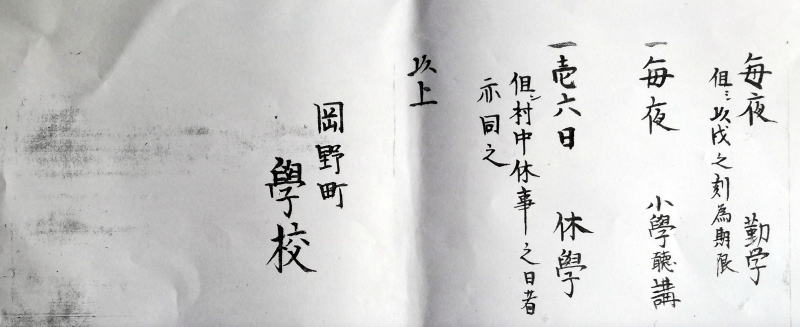 毎夜 勤学
但シ以戌之刻為期限
一毎夜 小學聴講
一壱六日 休學
但シ村中休事之日者
亦同之
以上
岡野町
學校